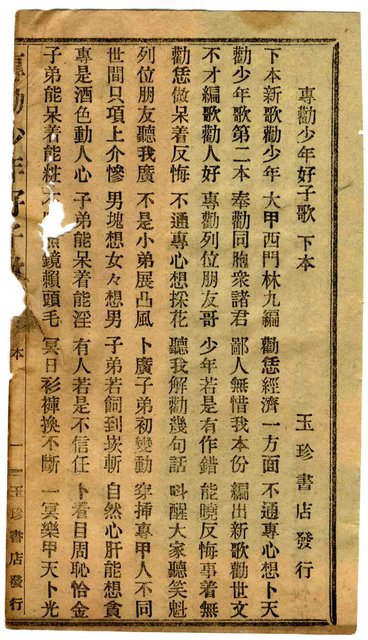 專勸少年好子歌 下本 玉珍書店發行
下本新歌勸少年 大甲西門林九編 勸恁經濟一方面 不通專心想卜天
勸少年歌第二本 奉勸同胞衆諸君 鄙人無惜我本份 編出新歌勸世文
不才編歌勸人好 專勸列位朋友哥 少年若是有作錯 能曉反悔事着無
勸恁做呆着反悔 不通專心想採花 聽我解勸幾句話 呌醒大家聽笑魁
列位朋友聽我廣 不是小弟展凸風 卜廣子弟初變動 穿揷專甲人不同
世間只項上介慘 男塊想女々想男 子弟若飼到崁斬 自然心肝能想貪
專是酒色動人心 子弟能呆着能淫 有人若是不信任 卜看目周恥恰金
子弟能呆着能粧 照鏡賴頭毛 冥日衫褲換不斷 一冥樂甲天卜光
專勸少年好子 本 一 玉珍書店發行